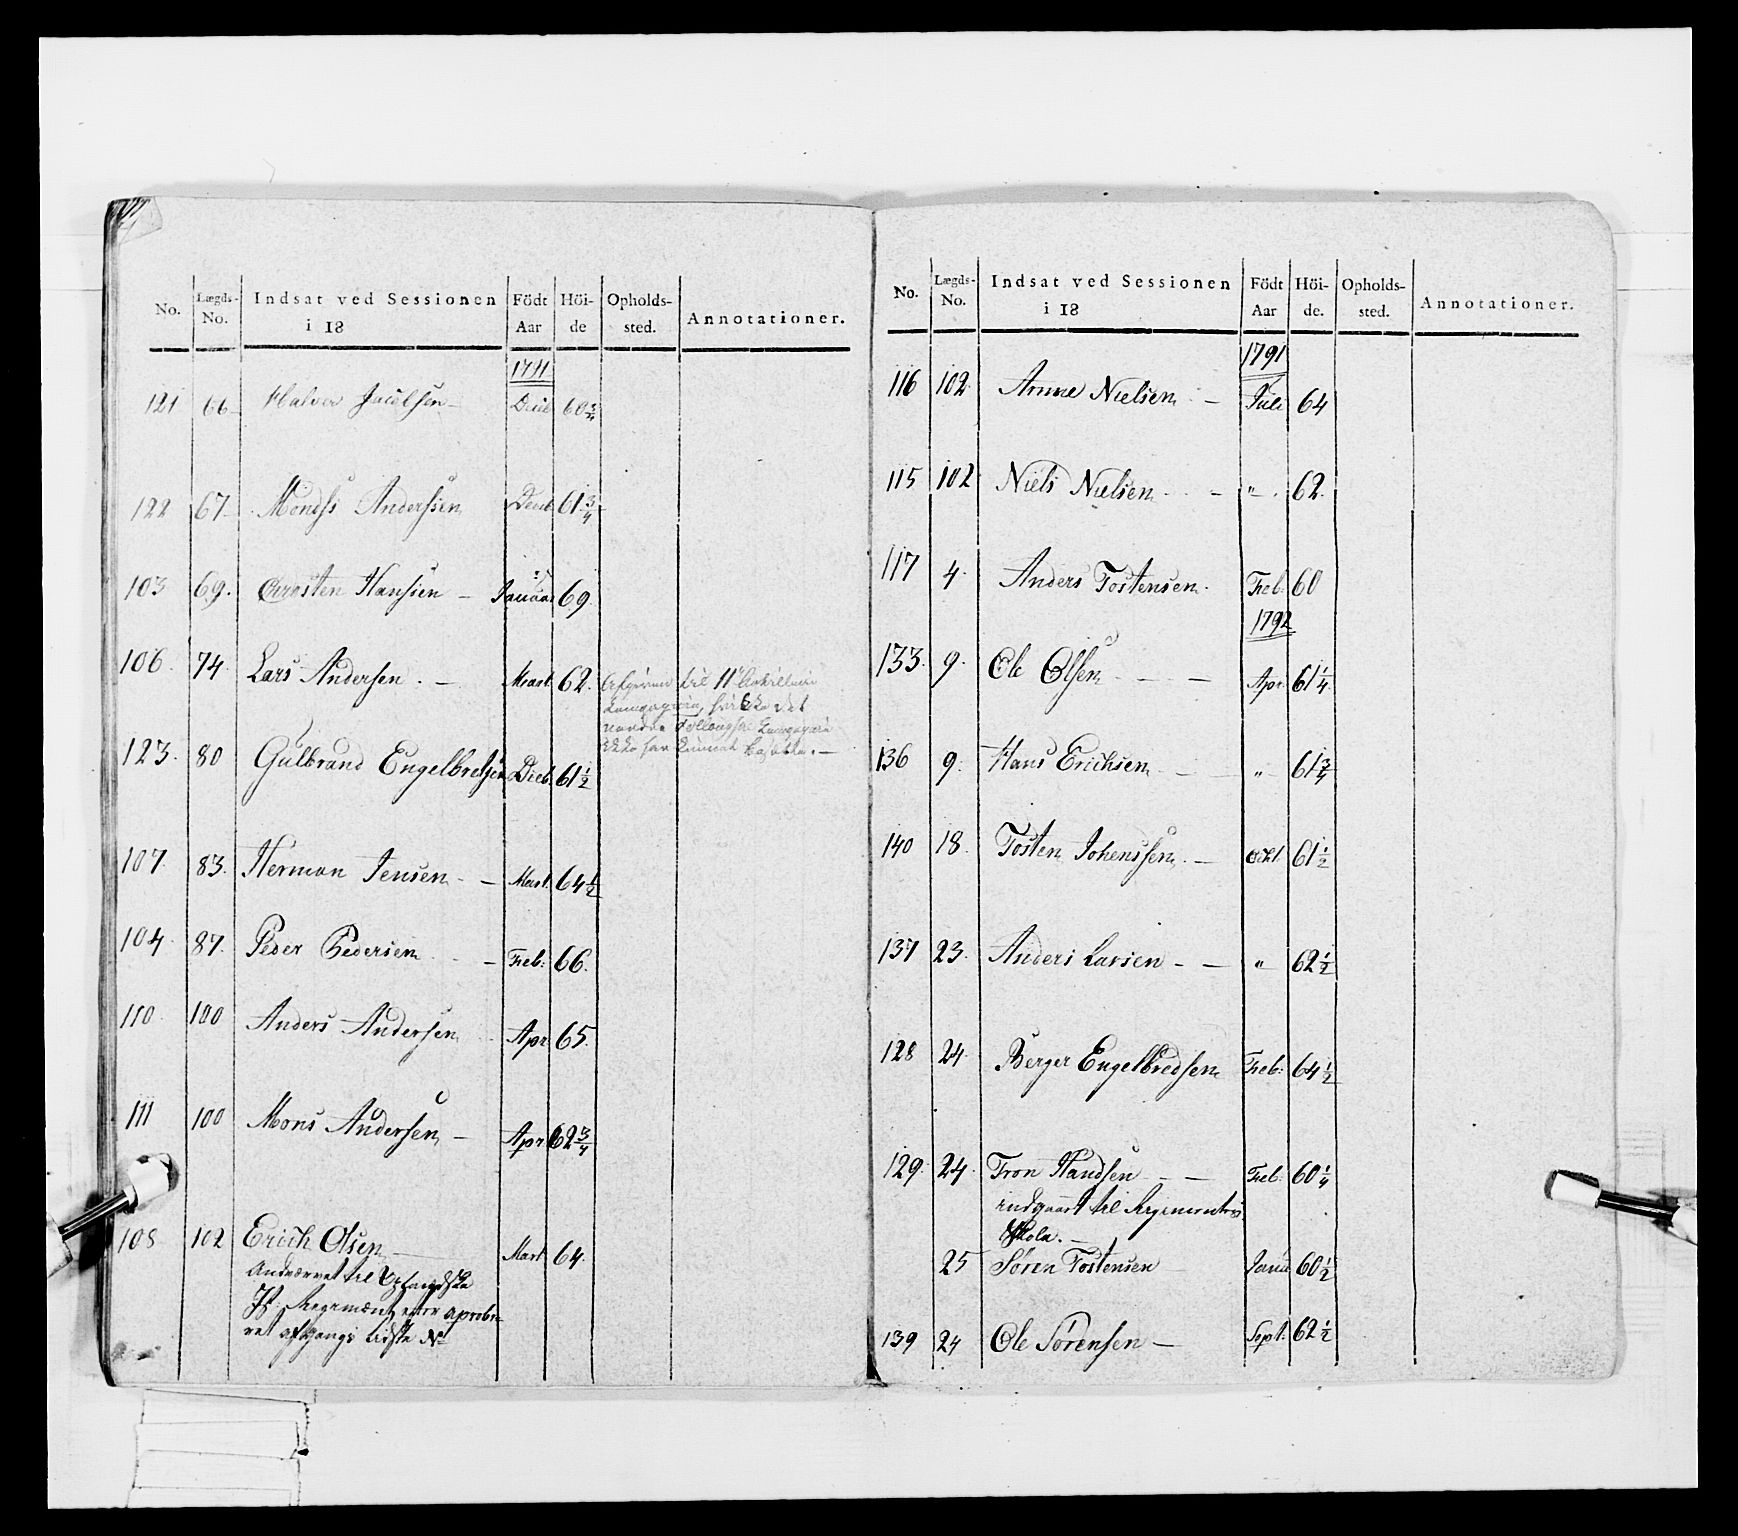 No. Lægds-No. Indsat ved Sessionen i 18 Födt Aar Höi-de Opholds-sted. Annotationer.
1791
121 66 Halvor Jacobsen Decb 60 3/4
122 67 Mondss Anderssen Decb 61 3/4
103 69. Hanssen Januar 69.
106. 74. Lars Andersen. Mart 62. til 11te
123. 80 Gulbrand Engelbretsen Decb. 61 1/2
107. 83. Herman Jensen Mart. 64 1/2
104. 87. Peder Pedersen Feb: 66.
110. 100 Anders Andersen Apr 65.
111 100 Mons Andersen Apr 62 3/4
108 102 Erich Olsen Mart 64.
til
Regiment efter aprobe-
ret afgangs Liste No
No. Lægds-No. Indsat ved Sessionen i 18 Födt Aar Höi-de. Opholds-sted. Annotationer.
1791
116 102 Arnne Nielsen Juli 64
115 102 Niels Nielsen " 62.
117 4. Anders Tostensen. Feb. 60
1792
133. 9. Ole Olsen Apr 61 1/4
136 9. Hans Erichsen " 61 3/4
140 18. Tosten Johenssen. Oct. 61 1/2
137 23. Anders Larsen " 62 1/2
128 24 Berger Engelbredsen Feb: 64 1/2
129. 24. Tron Handsen Feb: 60 1/4
indgaaet til Regimentets
Skole.
25 Søren Tostensen Janu 60 1/2
139 24 Ole Sørensen Sept. 62 1/2